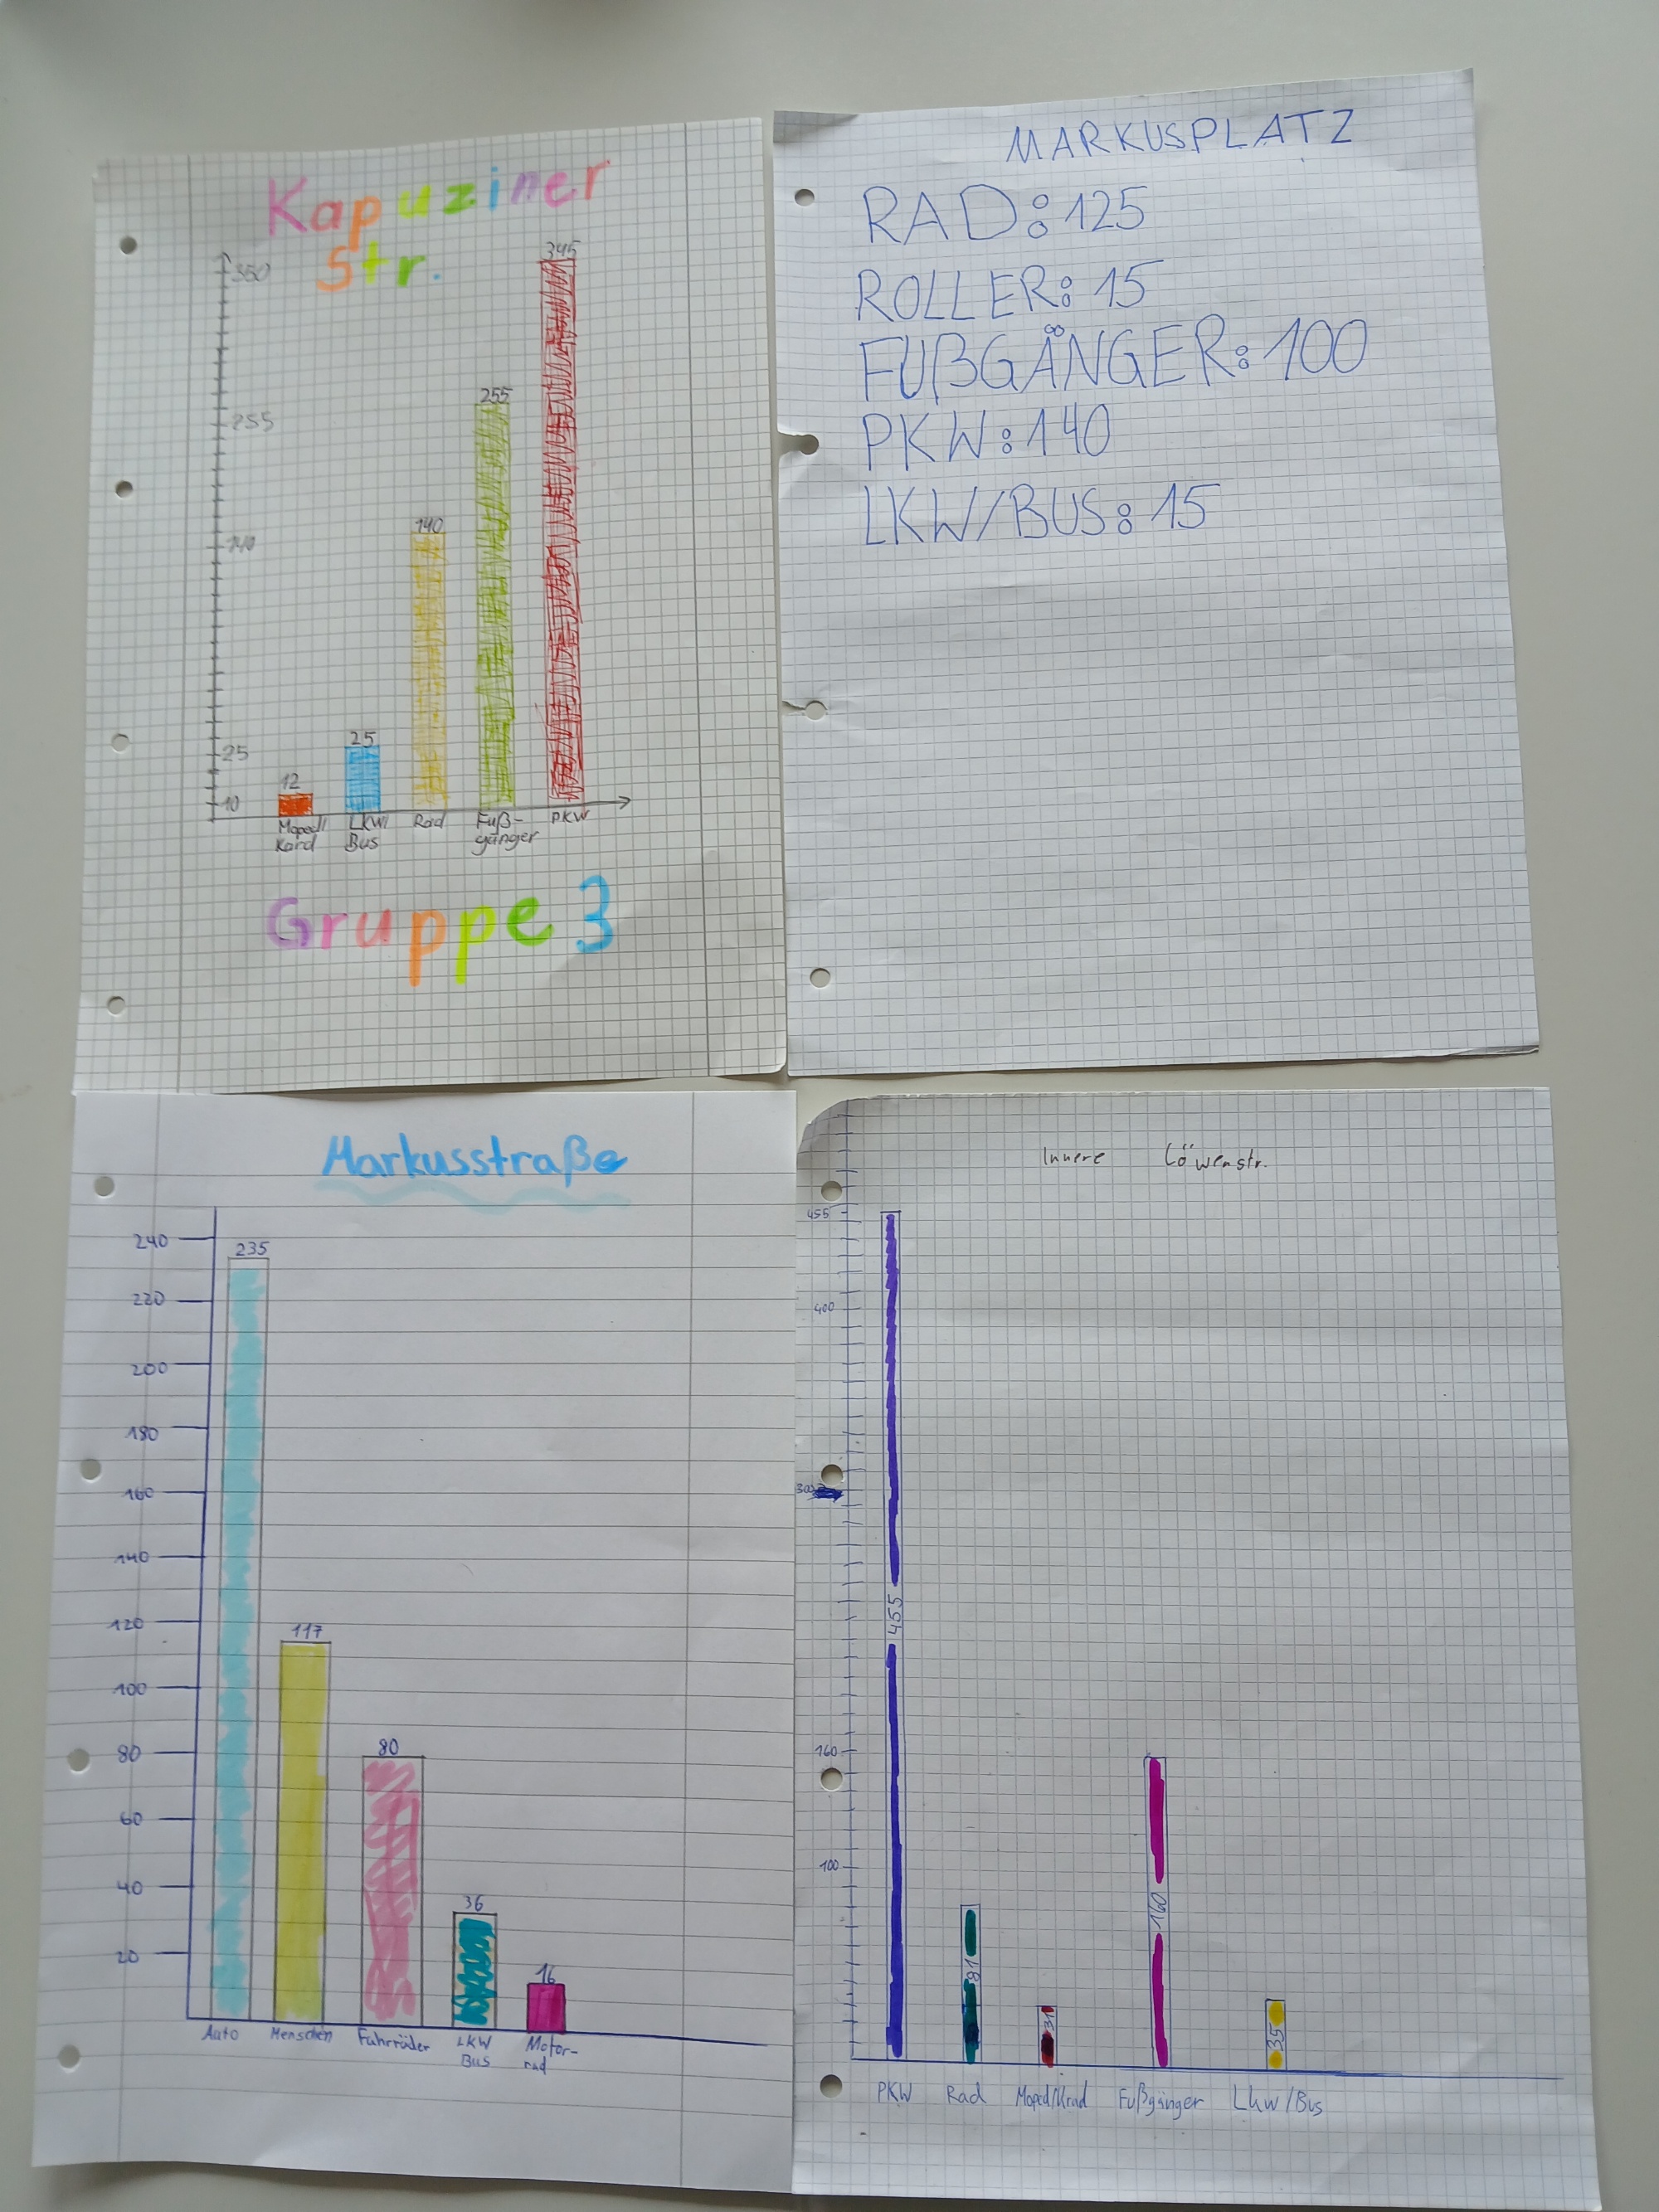 Kapuziner
Str.
350
255
140
25
10
12
25
140
255
345
Moped/
Kard
LKW/
Bus
Rad
Fuß-
gänger
PKW
Gruppe 3
MARKUSPLATZ
RAD: 125
ROLLER: 15
FUßGÄNGER: 100
PKW: 140
LKW/BUS: 15
Markusstraße
240
220
200
180
160
140
120
100
80
60
40
20
235
117
80
36
16
Auto
Menschen
Fahrräder
LKW
Bus
Motor-
rad
Innere Löwenstr.
455
400
300
160
100
455
81
31
160
35
PKW
Rad
Moped/Krad
Fußgänger
Lkw/Bus